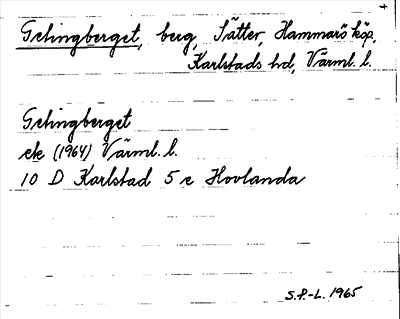 Getingberget, berg, Sätter, Hammarö köp.
Karlstads hd, Värml. l.
Getingberget
ek (1964) Värml. l.
10 D Karlstad 5 e Hovlanda
S.P.-L. 1965